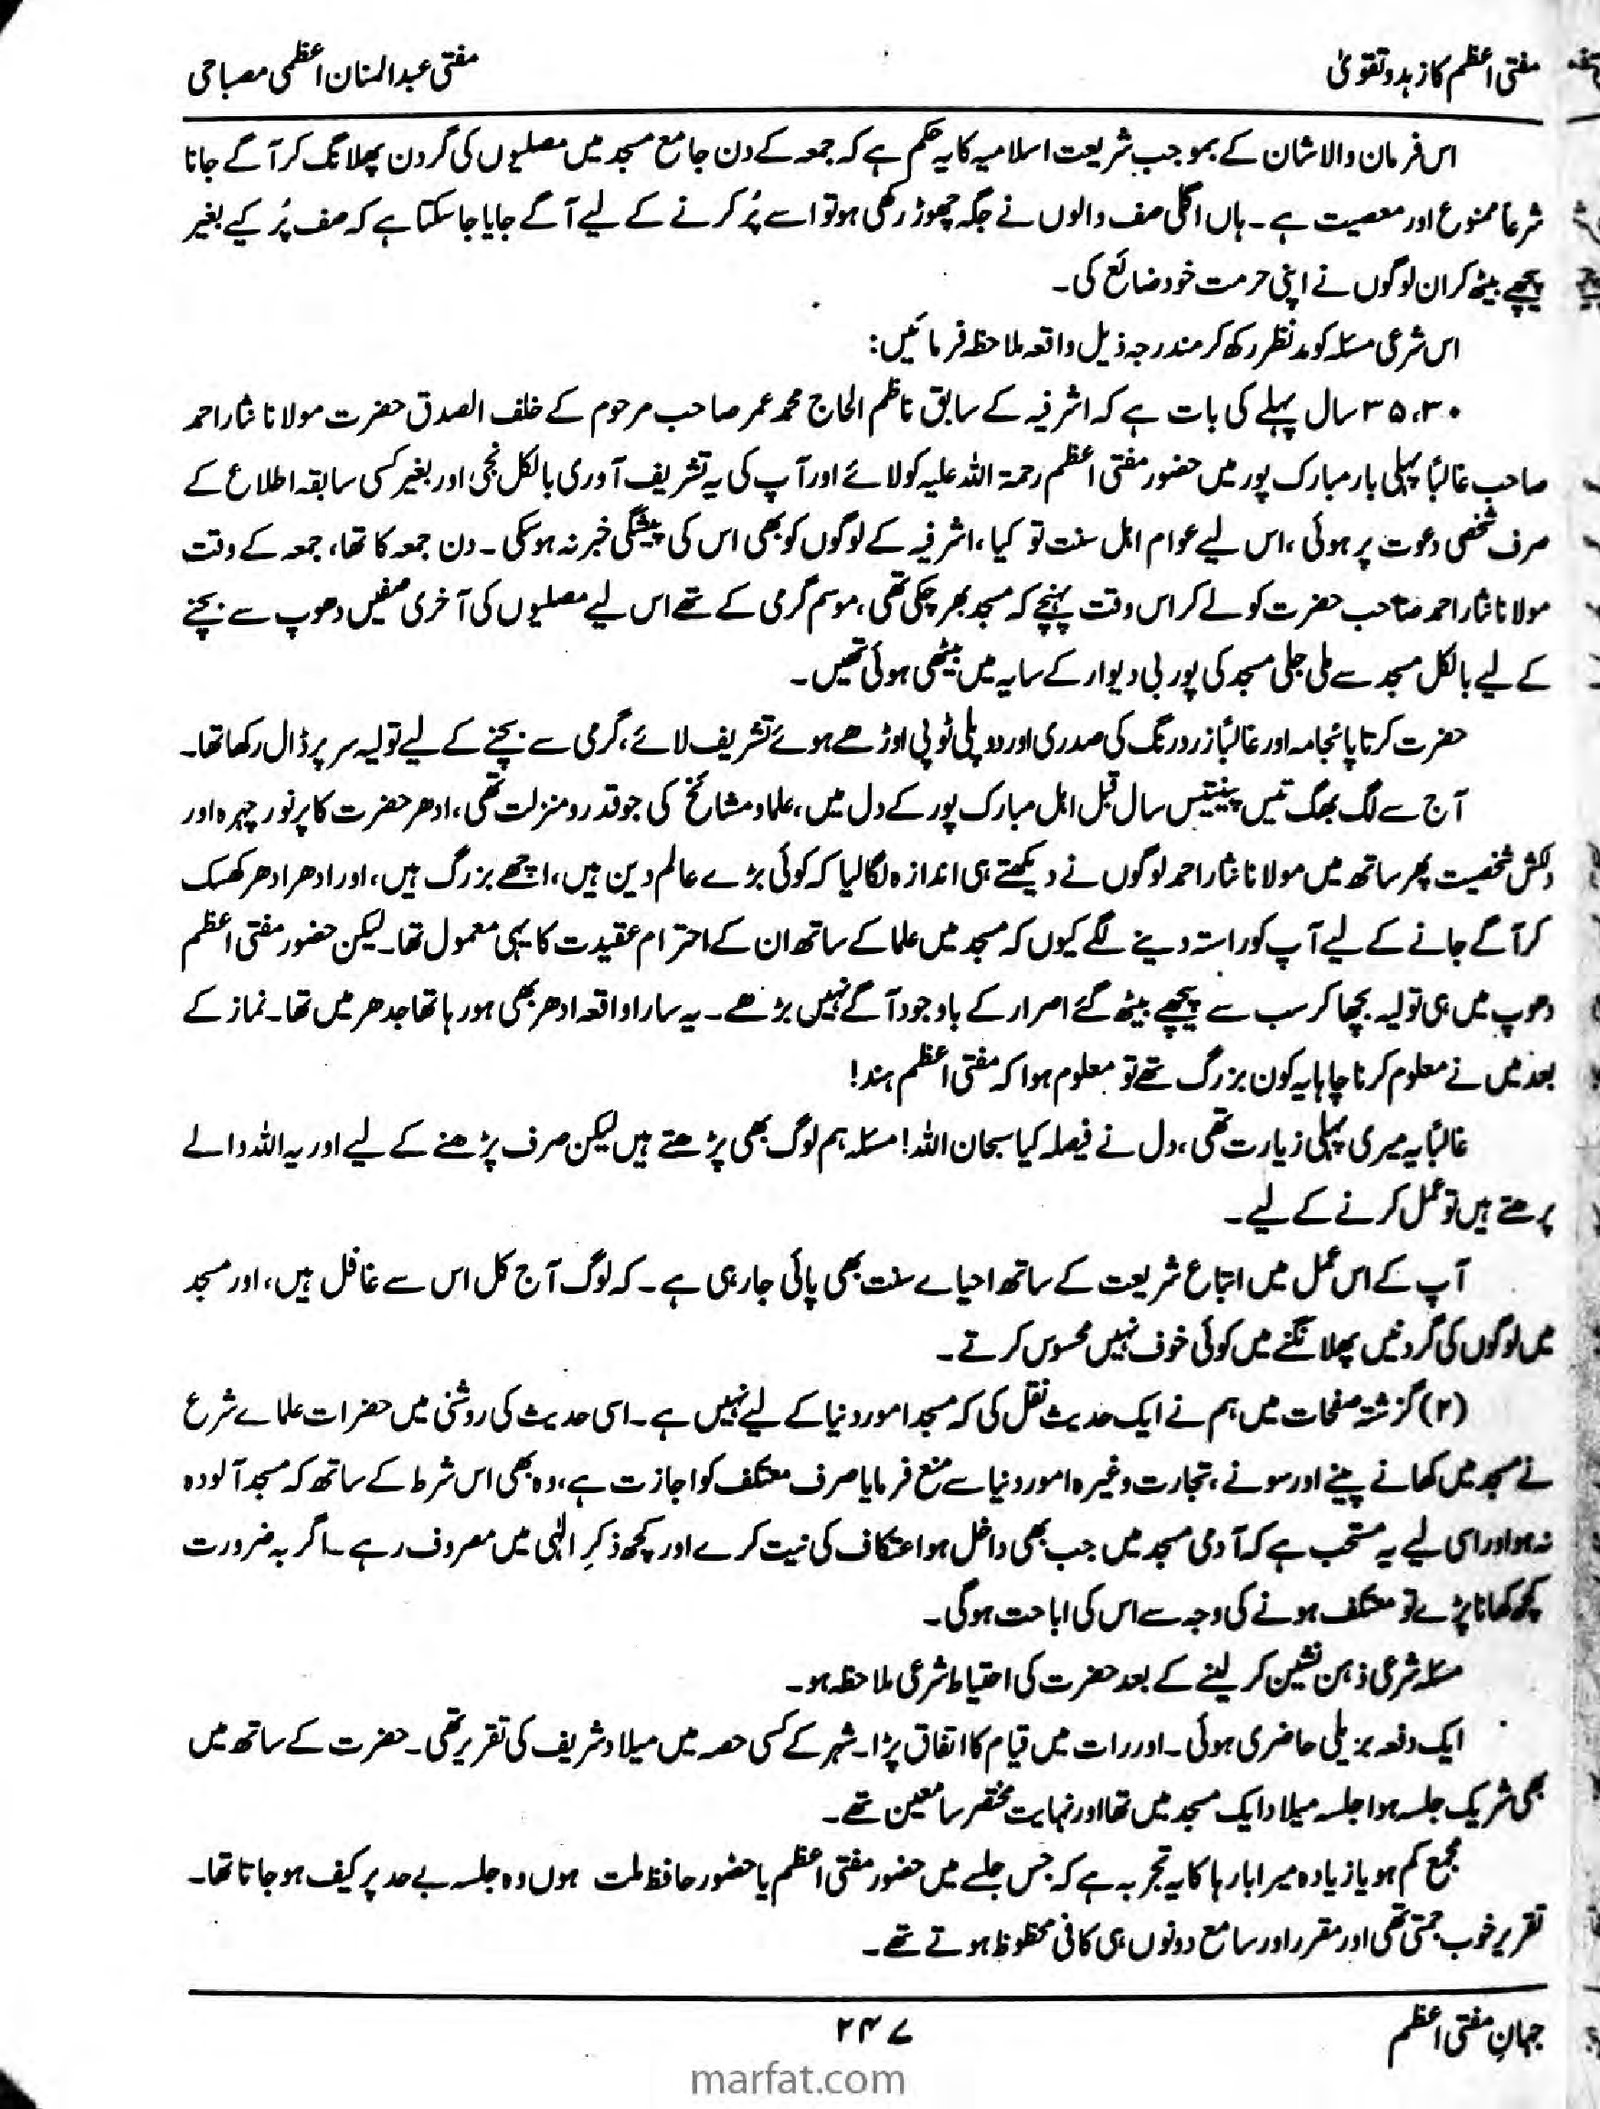 مفتی اعظم کا زہد و تقویٰ
مفتی عبدالمنان اعظمی مصباحی
اس فرمان والا شان کے بموجب شریعت اسلامیہ کا یہ حکم ہے کہ جمعہ کے دن جامع مسجد میں مصلیوں کی گردن پھلانگ کر آگے جانا
شرعاً ممنوع اور معصیت ہے۔ ہاں اگلی صف والوں نے جگہ چھوڑ رکھی ہو تو اسے پُر کرنے کے لیے آگے جایا جاسکتا ہے کہ صف پُر کیے بغیر
پیچھے بیٹھ کر ان لوگوں نے اپنی حرمت خود ضائع کی۔
اس شرعی مسئلہ کو مدنظر رکھ کر مندرجہ ذیل واقعہ ملاحظہ فرمائیں:
۳۵،۳۰ سال پہلے کی بات ہے کہ اشرفیہ کے سابق ناظم الحاج محمد عمر صاحب مرحوم کے خلف الصدق حضرت مولانا نثار احمد
صاحب غالباً پہلی بار مبارک پور میں حضور مفتی اعظم رحمۃ اللہ علیہ کو لائے اور آپ کی یہ تشریف آوری بالکل نجی اور بغیر کسی سابقہ اطلاع کے
صرف شخصی دعوت پر ہوئی، اس لیے عوام اہل سنت تو کیا، اشرفیہ کے لوگوں کو بھی اس کی پیشگی خبر نہ ہوسکی۔ دن جمعہ کا تھا، جمعہ کے وقت
مولانا نثار احمد صاحب حضرت کو لے کر اس وقت پہنچے کہ مسجد بھر چکی تھی، موسم گرمی کے تھے اس لیے مصلیوں کی آخری صفیں دھوپ سے بچنے
کے لیے بالکل مسجد سے ملی جلی مسجد کی پوربی دیوار کے سایہ میں بیٹھی ہوئی تھیں۔
حضرت کرتا پائجامہ اور غالباً زرد رنگ کی صدری اور دوپلی ٹوپی اوڑھے ہوئے تشریف لائے، گرمی سے بچنے کے لیے تولیہ سر پر ڈال رکھا تھا۔
آج سے لگ بھگ تیس پینتیس سال قبل اہل مبارک پور کے دل میں، علما و مشائخ کی جو قدر و منزلت تھی، ادھر حضرت کا پرنور چہرہ اور
دلکش شخصیت پھر ساتھ میں مولانا نثار احمد لوگوں نے دیکھتے ہی اندازہ لگا لیا کہ کوئی بڑے عالم دین ہیں، اچھے بزرگ ہیں، اور ادھر ادھر کھسک
کر آگے جانے کے لیے آپ کو راستہ دینے لگے کیوں کہ مسجد میں علما کے ساتھ ان کے احترام عقیدت کا یہی معمول تھا۔ لیکن حضور مفتی اعظم
دھوپ میں ہی تولیہ بچھا کر سب سے پیچھے بیٹھ گئے اصرار کے باوجود آگے نہیں بڑھے۔ یہ سارا واقعہ ادھر بھی ہو رہا تھا جدھر میں تھا۔ نماز کے
بعد میں نے معلوم کرنا چاہا یہ کون بزرگ تھے تو معلوم ہوا کہ مفتی اعظم ہند!
غالباً یہ میری پہلی زیارت تھی، دل نے فیصلہ کیا سبحان اللہ! مسئلہ ہم لوگ بھی پڑھتے ہیں لیکن صرف پڑھنے کے لیے اور یہ اللہ والے
پڑھتے ہیں تو عمل کرنے کے لیے۔
آپ کے اس عمل میں اتباع شریعت کے ساتھ احیاے سنت بھی پائی جارہی ہے۔ کہ لوگ آج کل اس سے غافل ہیں، اور مسجد
میں لوگوں کی گردنیں پھلانگنے میں کوئی خوف نہیں محسوس کرتے۔
(۲) گزشتہ صفحات میں ہم نے ایک حدیث نقل کی کہ مسجد امور دنیا کے لیے نہیں ہے۔ اسی حدیث کی روشنی میں حضرات علماے شرع
نے مسجد میں کھانے پینے اور سونے، تجارت وغیرہ امور دنیا سے منع فرمایا صرف معتکف کو اجازت ہے، وہ بھی اس شرط کے ساتھ کہ مسجد آلودہ
نہ ہو اور اسی لیے یہ مستحب ہے کہ آدمی مسجد میں جب بھی داخل ہو اعتکاف کی نیت کرے اور کچھ ذکرِ الٰہی میں مصروف رہے۔ اگر بہ ضرورت
کچھ کھانا پڑے تو معتکف ہونے کی وجہ سے اس کی اباحت ہوگی۔
مسئلہ شرعی ذہن نشین کرلینے کے بعد حضرت کی احتیاط شرعی ملاحظہ ہو۔
ایک دفعہ بریلی حاضری ہوئی۔ اور رات میں قیام کا اتفاق پڑا۔ شہر کے کسی حصہ میں میلاد شریف کی تقریر تھی۔ حضرت کے ساتھ میں
بھی شریک جلسہ ہوا جلسہ میلاد ایک مسجد میں تھا اور نہایت مختصر سامعین تھے۔
مجمع کم ہو یا زیادہ میرا بارہا کا یہ تجربہ ہے کہ جس جلسے میں حضور مفتی اعظم یا حضور حافظ ملت ہوں وہ جلسہ بے حد پر کیف ہو جاتا تھا۔
تقریر خوب جمتی تھی اور مقرر اور سامع دونوں ہی کافی محظوظ ہوتے تھے۔
جہانِ مفتی اعظم
۲۴۷
marfat.com